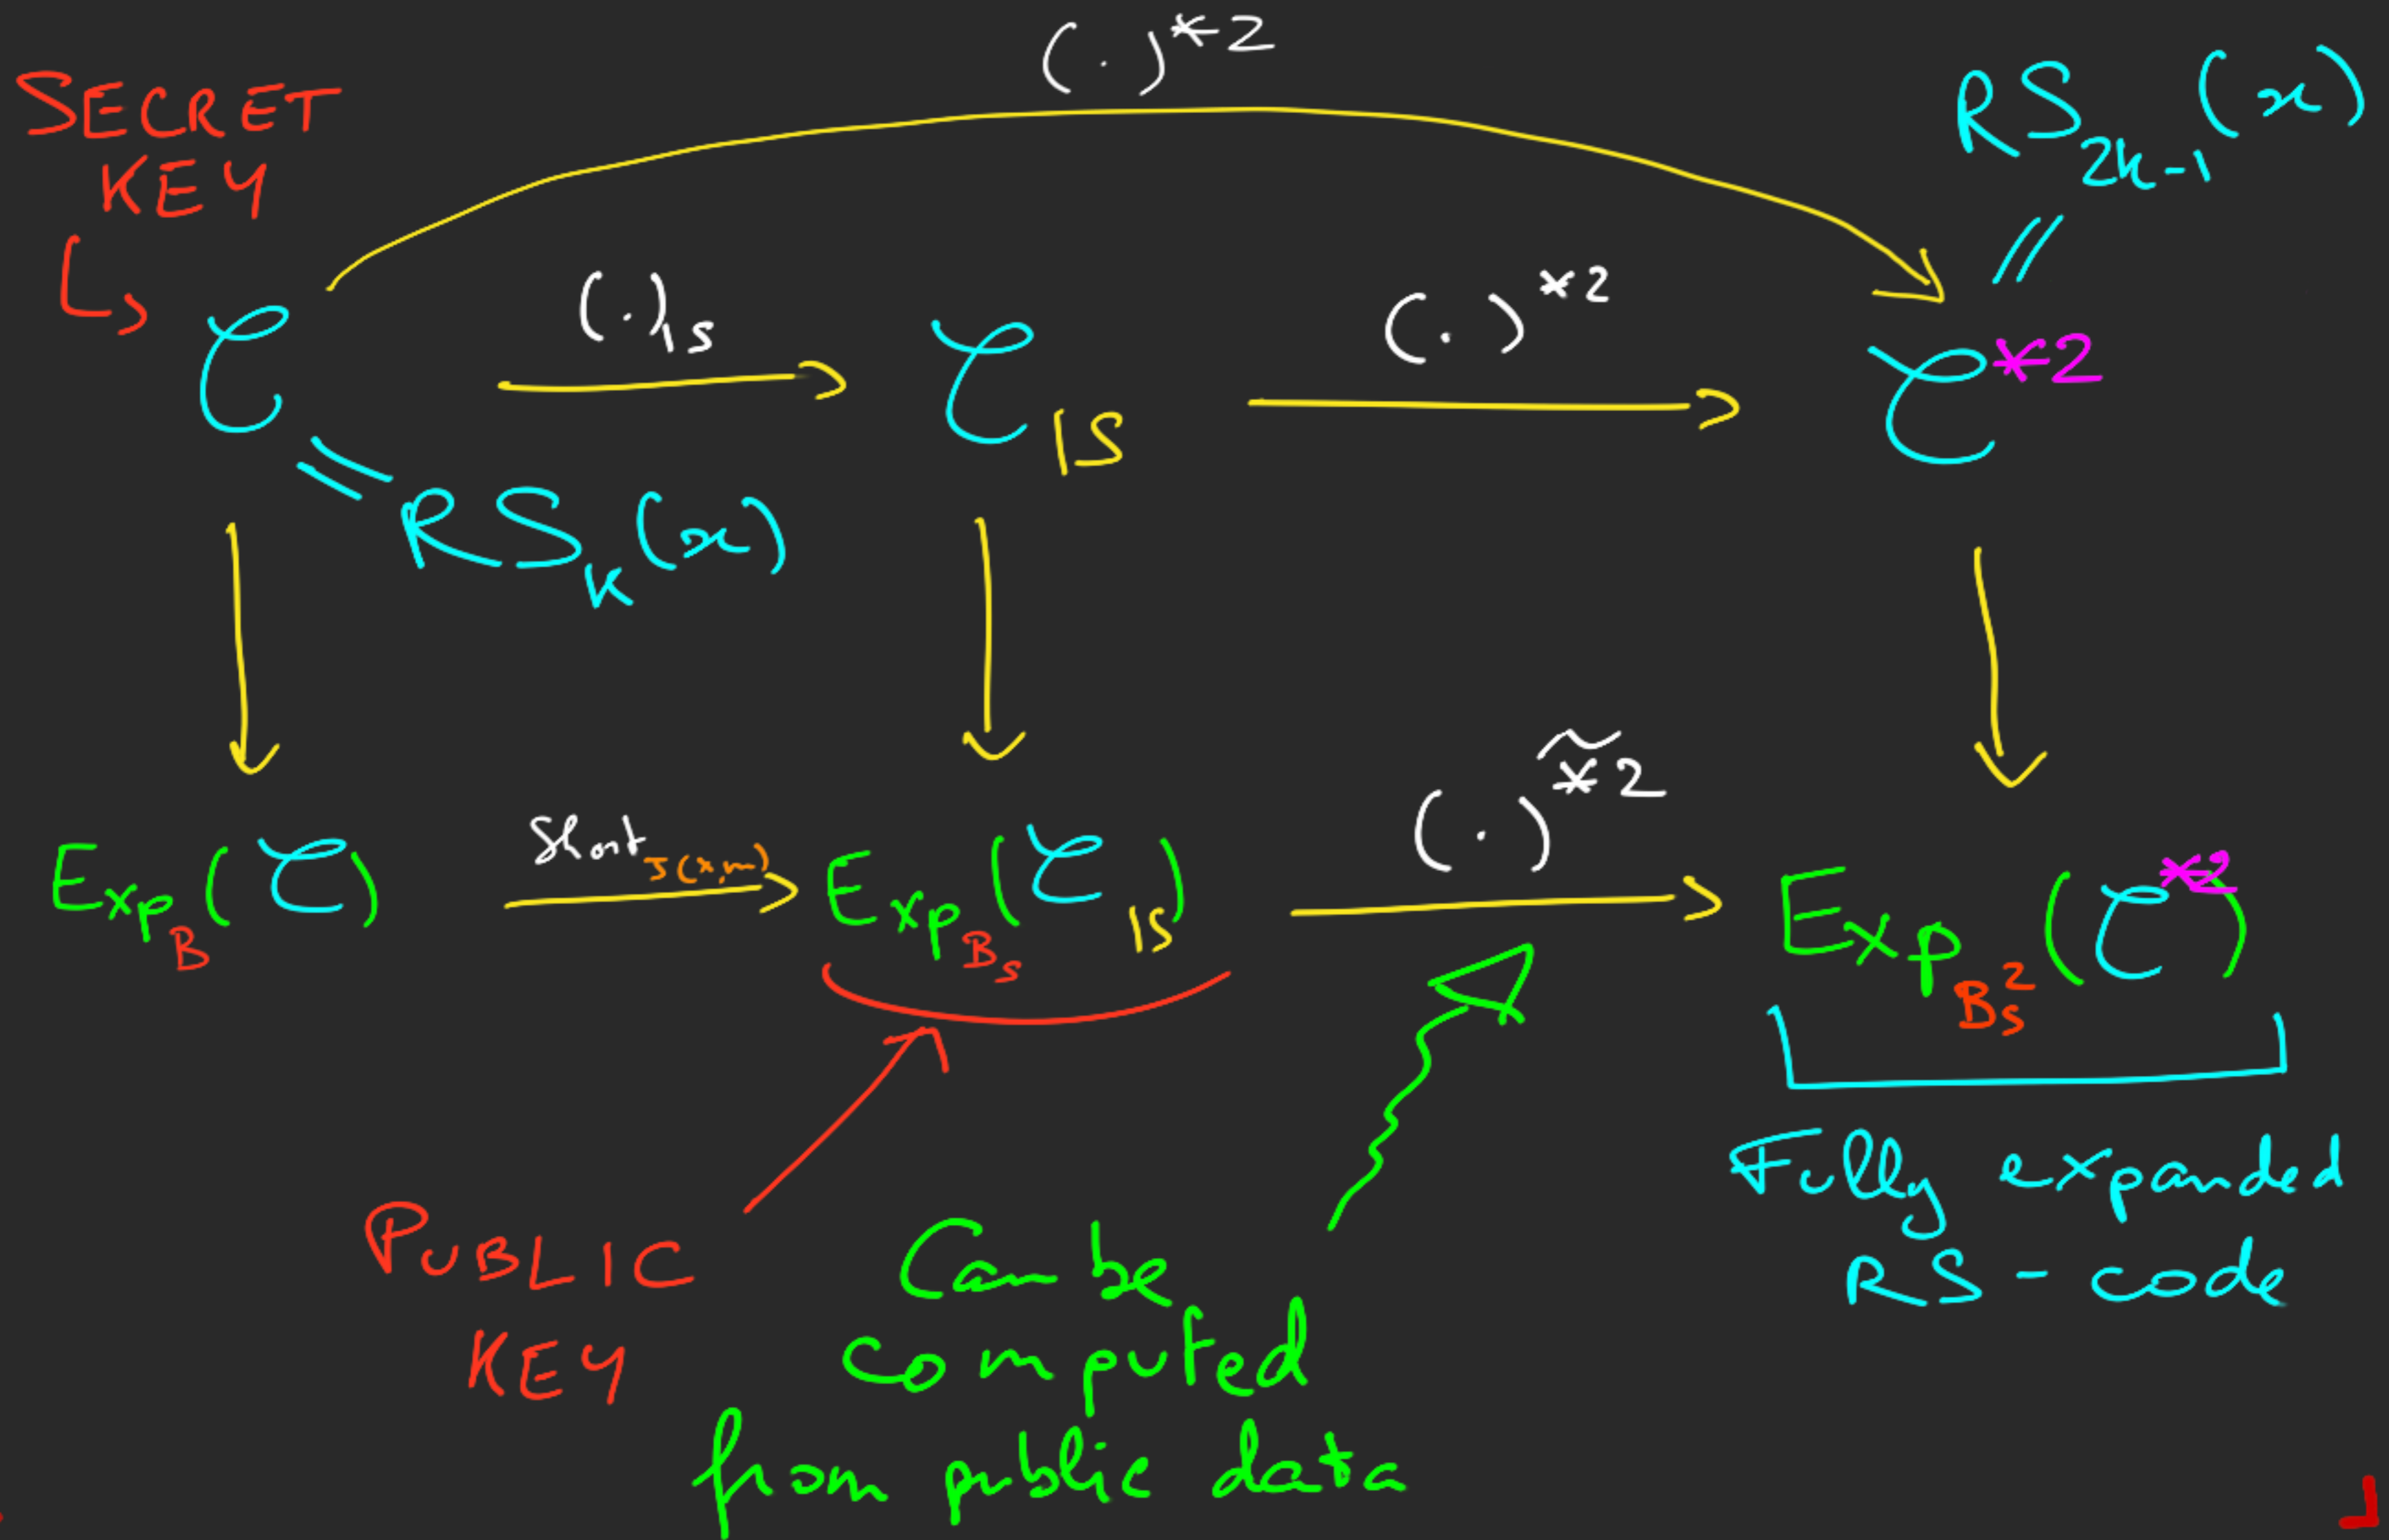 (·)*2
SECRET
KEY
RS_{2k-1}(x)
(·)_{|S}
(·)*2
C
C_{|S}
C*2
= RS_k(x)
Short_{S(x,m)}
(·)^{\widetilde{*2}}
Exp_B(C)
Exp_{B_S}(C_{|S})
Exp_{B_S^2}(C*2)
PUBLIC
KEY
Can be
computed
from public data
Fully expanded
RS-code